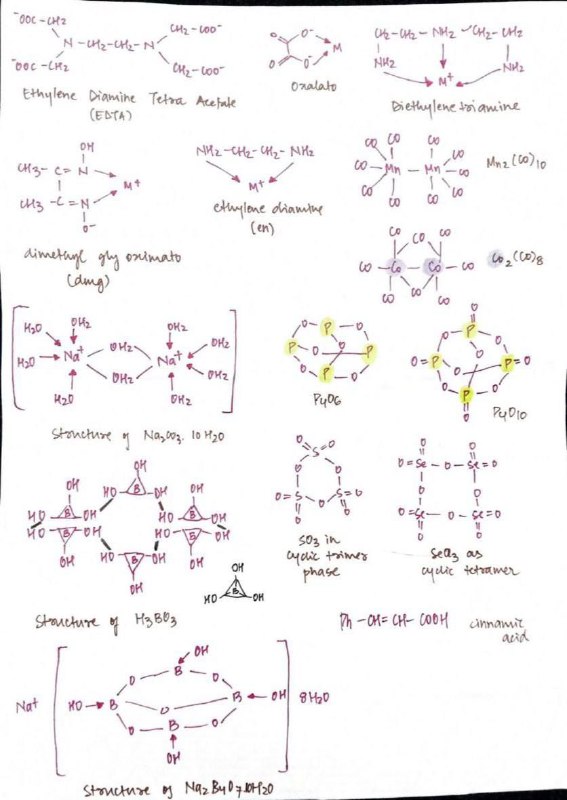 ⁻OOC-CH₂ CH₂-COO⁻
N-CH₂-CH₂-N
⁻OOC-CH₂ CH₂-COO⁻
Ethylene Diamine Tetra Acetate
(EDTA)
O O⁻
M
O O⁻
Oxalato
CH₂-CH₂-NH₂ CH₂-CH₂
NH₂ NH₂
M⁺
Diethylene triamine
OH
CH₃-C=N
M⁺
CH₃-C=N
O⁻
dimethyl gly oximato
(dmg)
NH₂-CH₂-CH₂-NH₂
M⁺
ethylene diamine
(en)
CO CO CO CO
CO-Mn-Mn-CO
CO CO CO CO
Mn₂(CO)₁₀
CO CO CO
CO-Co-Co-CO
CO CO CO
Co₂(CO)₈
H₂O OH₂ OH₂
H₂O Na⁺ OH₂ Na⁺ OH₂
OH₂ OH₂
H₂O OH₂
Structure of Na₂CO₃.10H₂O
P
O O
P O O P
O P O
P₄O₆
O
P
O O
O=P O O P=O
O P O
O
P₄O₁₀
OH
HO B OH
OH OH
HO B OH HO B OH
HO B OH HO B OH
OH OH
HO B OH
OH
Structure of H₃BO₃
OH
B
HO OH
O O
S
O O
O=S O S=O
O O
SO₃ in
cyclic trimer
phase
O O
O=Se-O-Se=O
O O
O=Se-O-Se=O
O O
SeO₃ as
cyclic tetramer
Ph-CH=CH-COOH cinnamic
acid
OH
O B O
Na⁺ HO B O B OH 8H₂O
O B O
OH
Structure of Na₂B₄O₇.10H₂O